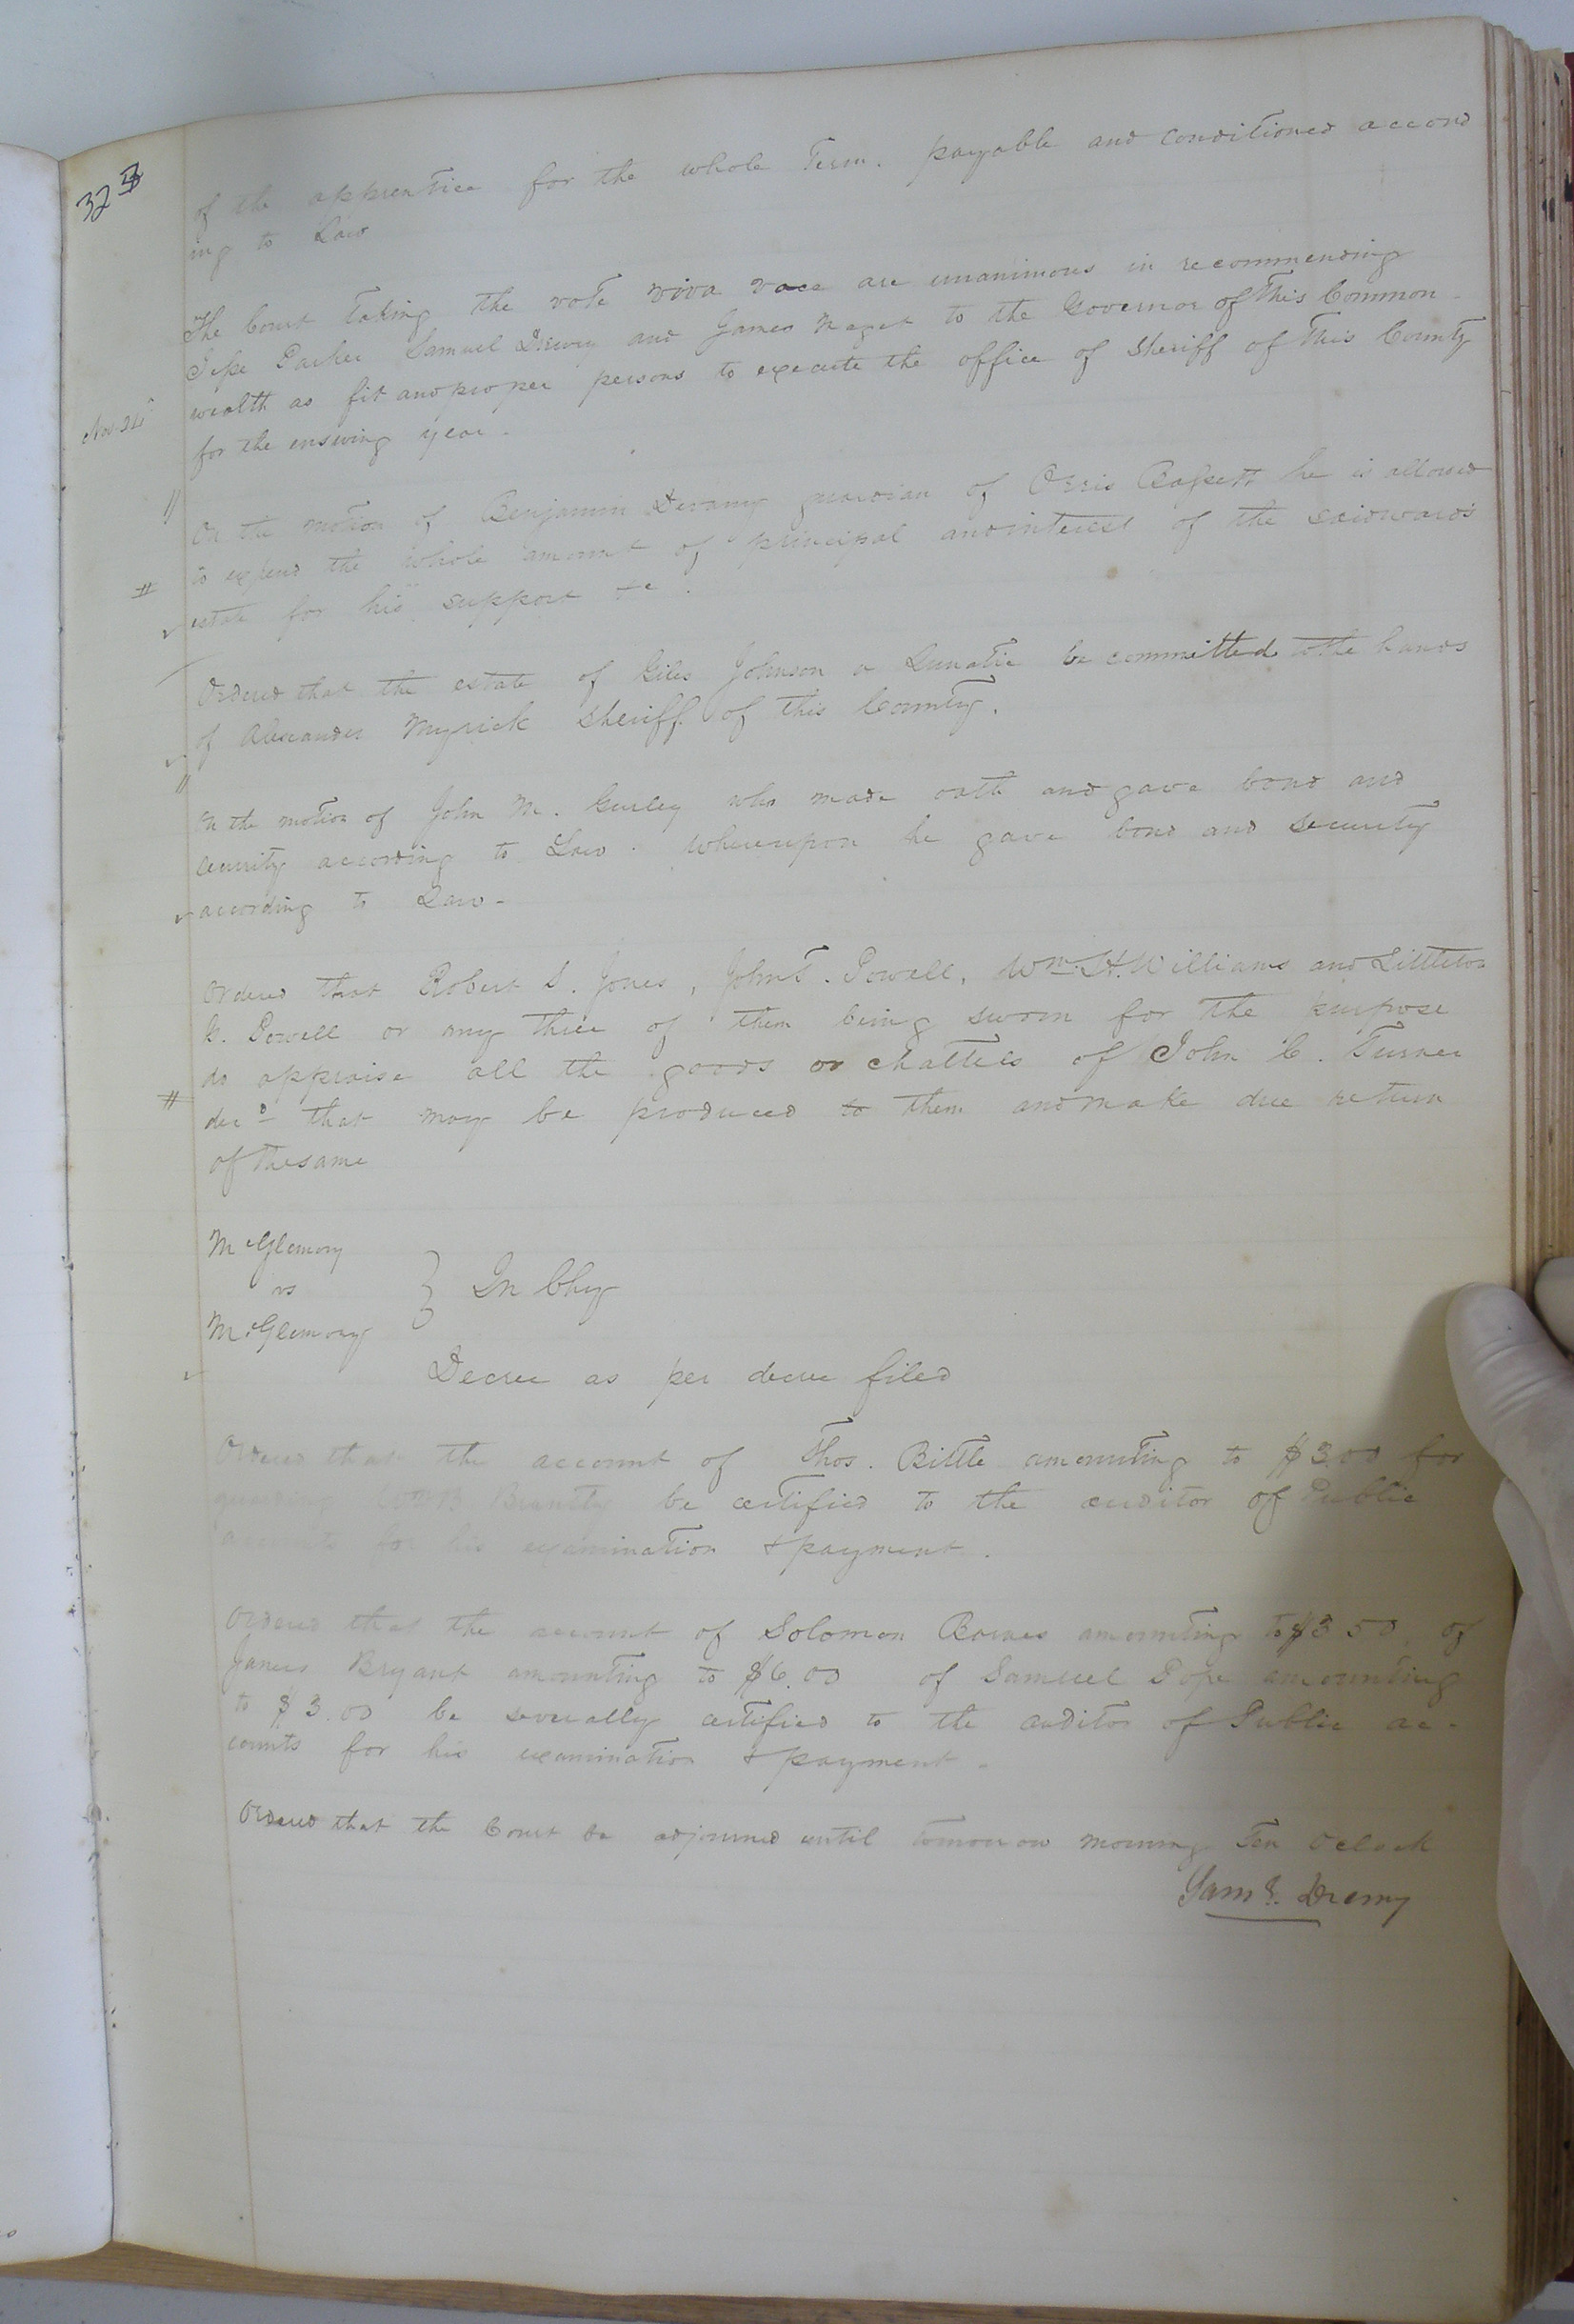 323
of the apprentice for the whole Term. payable and conditioned accord
ing to Law
The Court taking the vote viva voce are unanimous in recommending
Jesse Parker Samuel Drewry and James Maget to the Governor of this Common-
wealth as fit and proper persons to execute the office of Sheriff of this County
Nov. 24
for the ensuing year.
On the motion of Benjamin Devany guardian of Orris Bassett he is allowed
to expend the whole amount of principal and interest of the said ward's
#
estate for his support &c.
Ordered that the estate of Giles Johnson a Lunatic be committed to the hands
of Alexander Myrick Sheriff of this County.
On the motion of John M. Gurley who made oath and gave bond and
security according to Law. Whereupon he gave bond and security
according to Law-
Ordered that Robert S. Jones, John T. Powell, Wm. H. Williams and Littleton
K. Powell or any three of them being sworn for the purpose
do appraise all the goods or chattels of John C. Turner
#
decd that may be produced to them and make due return
of the same
McGlemory
vs } In Chy
McGlemory
Decree as per decree filed
Ordered that the account of Thos. Bittle amounting to $3.00 for
guarding be certified to the auditor of Public
accounts for his examination & payment.
Ordered that the account of Solomon Barnes amounting to $3 50, of
James Bryant amounting to $6.00 of Samuel Pope amounting
to $3.00 be severally certified to the auditor of Public ac-
counts for his examination & payment-
Ordered that the Court be adjourned until tomorrow morning Ten O clock
Saml. Drewry